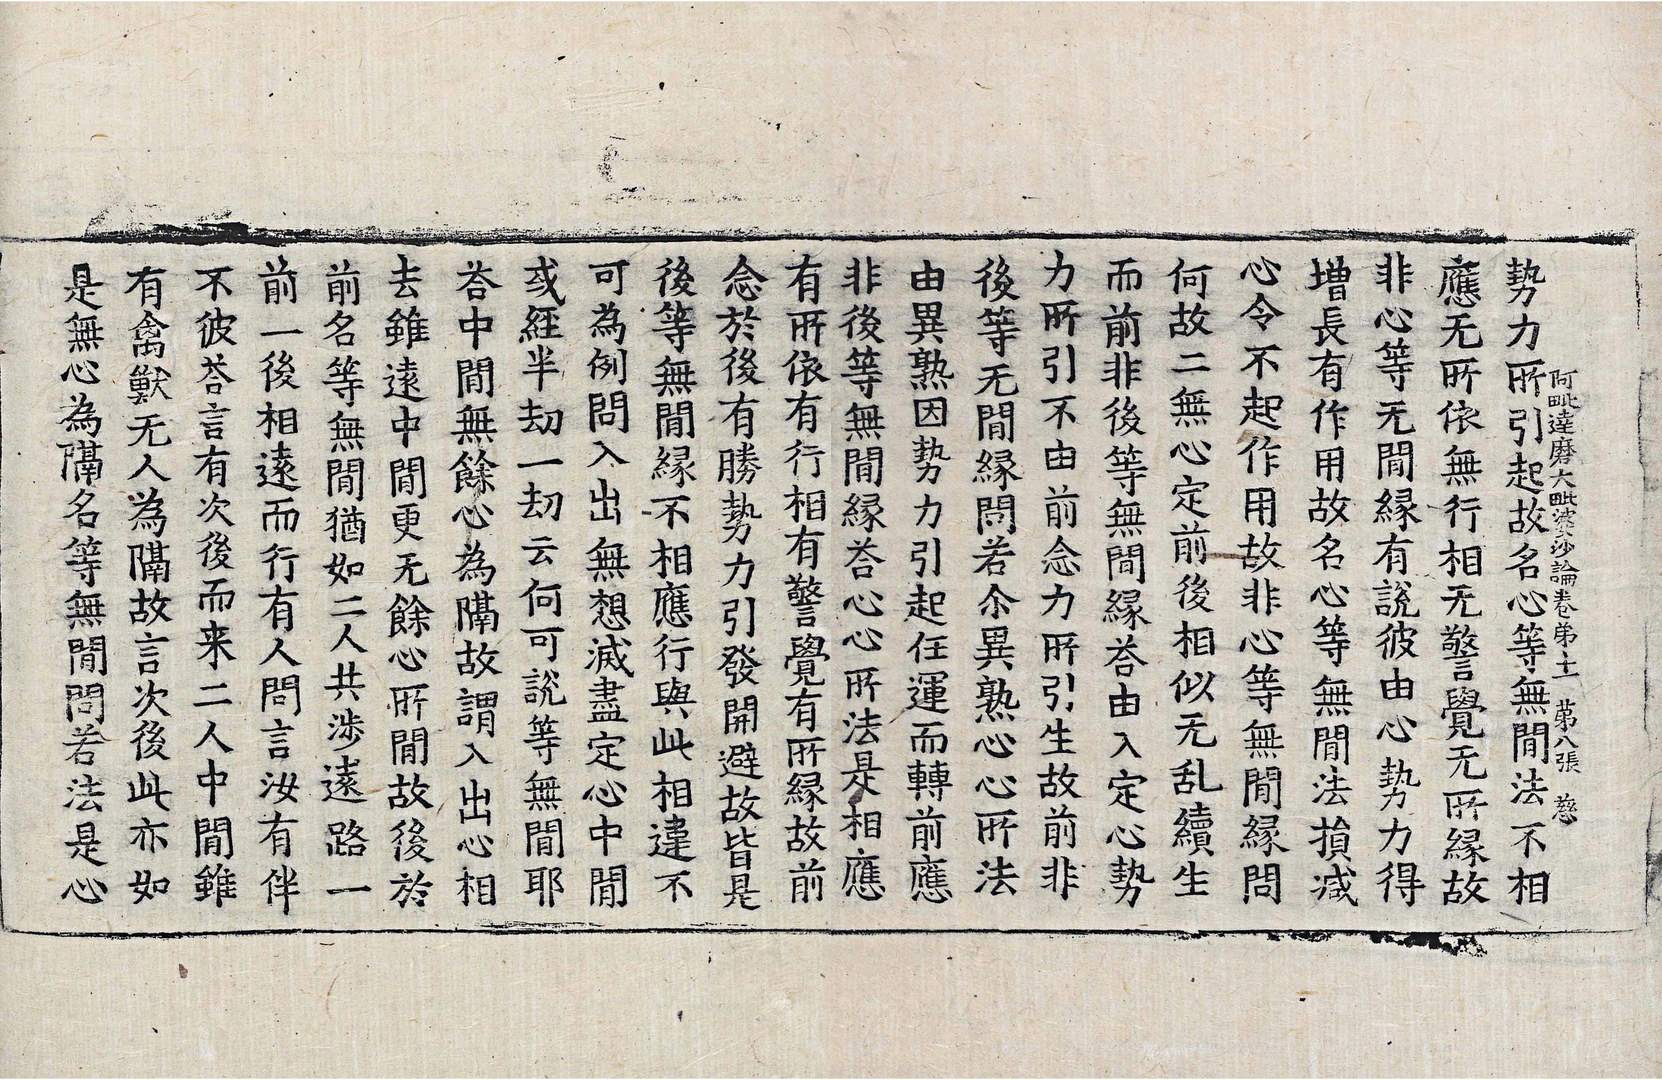 阿毗達磨大毗婆沙論卷弟十一 苐八張 慈
勢力所引起故名心等無閒法不相
應无所依無行相无警覺无所縁故
非心等无閒縁有說彼由心勢力得
增長有作用故名心等無閒法損减
心令不起作用故非心等無閒縁問
何故二無心定前後相似无乱續生
而前非後等無閒縁荅由入定心勢
力所引不由前念力所引生故前非
後等无閒縁問若尒異熟心心所法
由異熟因勢力引起任運而轉前應
非後等無閒縁荅心心所法是相應
有所依有行相有警覺有所縁故前
念於後有勝勢力引發開避故皆是
後等無閒縁不相應行與此相違不
可為例問入出無想滅盡定心中閒
或経半劫一劫云何可說等無閒耶
荅中閒無餘心為隔故謂入出心相
去雖遠中閒更无餘心所閒故後於
前名等無閒猶如二人共涉遠路一
前一後相遠而行有人問言汝有伴
不彼荅言有次後而来二人中閒雖
有禽獸无人為隔故言次後此亦如
是無心為隔名等無閒問若法是心